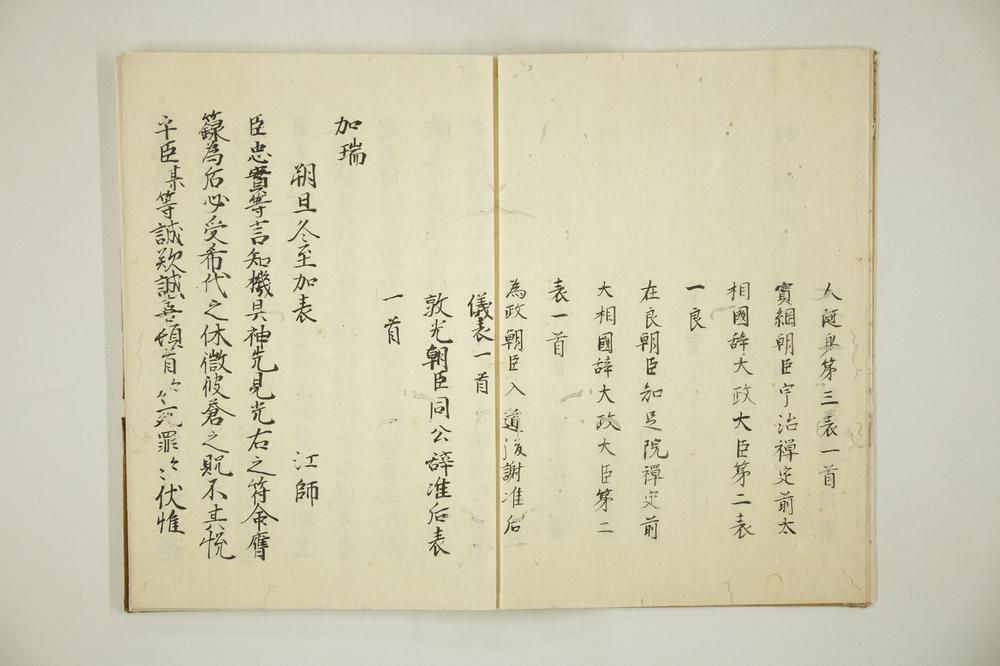 人随兵第三表一首
實綱朝臣宇治禅定前太
相國辞大政大臣第二表
一良
在良朝臣知足院禪定前
大相國辞大政大臣第二
表一首
為政朝臣入道後謝准后
儀表一首
敦光朝臣同公辞准后表
一首
加瑞
朔旦冬至加表 江師
臣忠實等言知機具神先見光右之符命膺
籙為后必受希代之休徴彼蒼之貺不其悦
乎臣某等誠歓誠喜頓首々々死罪々々伏惟